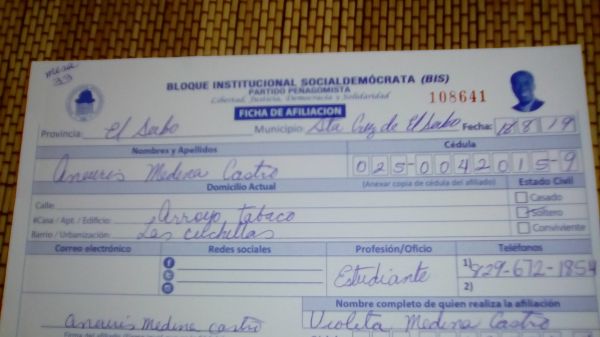 mesa
33
BLOQUE INSTITUCIONAL SOCIALDEMÓCRATA (BIS)
PARTIDO PEÑAGOMISTA
Libertad, Justicia, Democracia y Solidaridad
108641
FICHA DE AFILIACION
Provincia: El Seibo Municipio: Sta Cruz de El Seibo Fecha: 18 8 19
Nombres y Apellidos Cédula
Aneuris Medina Castro 025-0042015-9
Domicilio Actual (Anexar copia de cédula del afiliado) Estado Civil
Calle: Casado
#Casa / Apt. / Edificio: Arroyo tabaco Soltero
Barrio / Urbanización: Las cuchillas Conviviente
Correo electrónico Redes sociales Profesión/Oficio Teléfonos
Estudiante 1) 829-672-1854
2)
Nombre completo de quien realiza la afiliación
Aneuris Medina castro Violeta Medina Castro